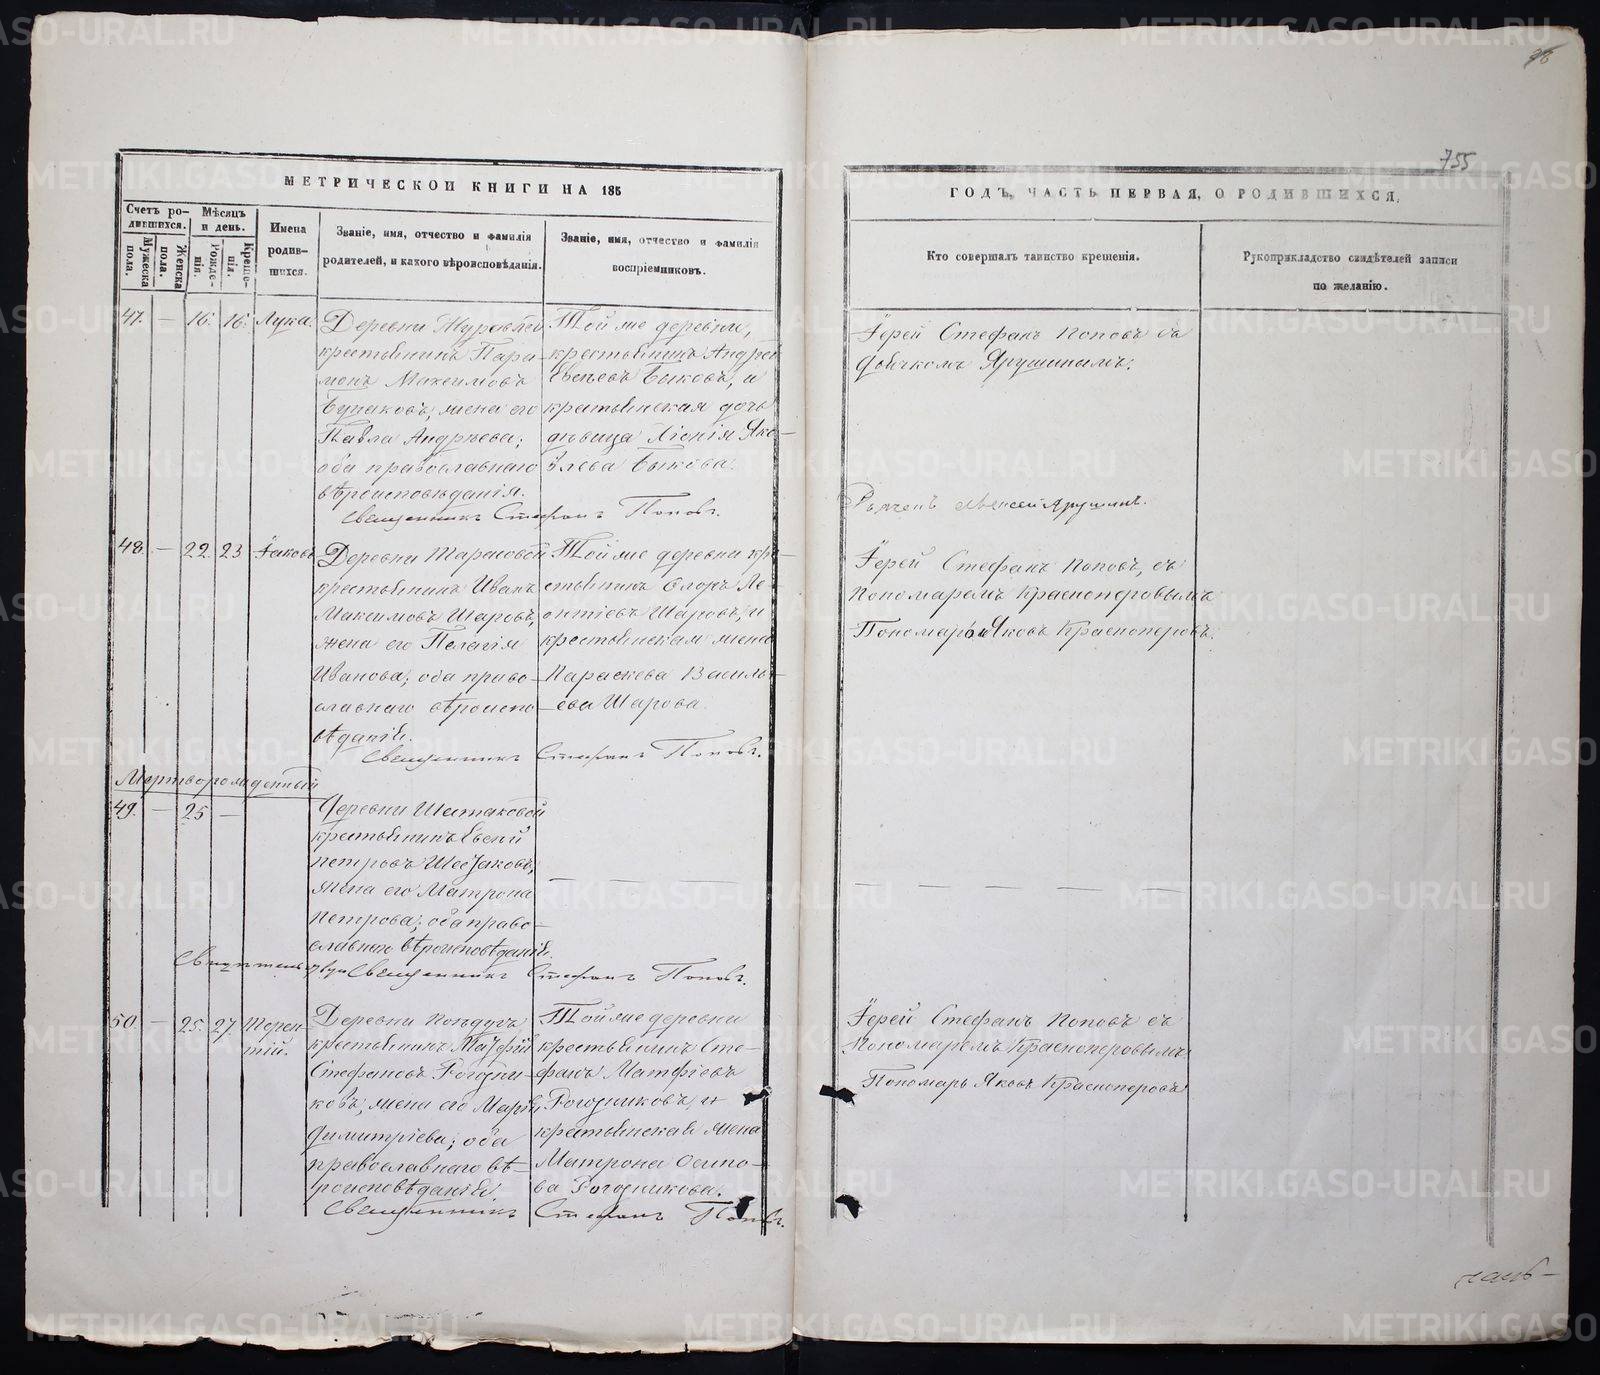 96
755
МЕТРИЧЕСКОЙ КНИГИ НА 185
ГОДЪ, ЧАСТЬ ПЕРВАЯ, О РОДИВШИХСЯ.
Счетъ родившихся.
Мужеска пола.
Женска пола.
Мѣсяцъ и день.
Рожденія.
Крещенія.
Имена родившихся.
Званіе, имя, отчество и фамилія
родителей, и какого вѣроисповѣданія.
Званіе, имя, отчество и фамилія
воспріемниковъ.
Кто совершалъ таинство крещенія.
Рукоприкладство свидѣтелей записи
по желанію.
47. — 16. 16. Лука.
Деревни
крестьянинъ Пара-
монъ Максимовъ
жена его
Павла Андреева;
оба православнаго
вѣроисповѣданія.
Той же деревни,
крестьянинъ Андрей
Быковъ, и
крестьянская дочь
дѣвица Яко-
влева Быкова.
Священникъ Стефанъ Поповъ.
Іерей Стефанъ Поповъ съ
дьячкомъ Ярушинымъ.
Алексей Ярушинъ.
48. — 22. 23. Іаковъ
Деревни Тарасовой
крестьянинъ Иванъ
Максимовъ Шаровъ,
жена его Пелагія
Иванова; оба право-
славнаго вѣроиспо-
вѣданія.
Той же деревни кре-
стьянинъ Ле-
онтіевъ Шаровъ, и
крестьянская жена
Параскева Василь-
ева Шарова.
Священникъ Стефанъ Поповъ.
Іерей Стефанъ Поповъ, съ
Пономаремъ Красноперовымъ
Пономарь Яковъ Красноперовъ.
Мертворожденный
49. — 25 —
Деревни Шестаковой
крестьянинъ
Петровъ Шестаковъ,
жена его Матрона
Петрова; оба право-
славнаго вѣроисповѣданія.
Священникъ Стефанъ Поповъ.
50. — 25. 27. Терен-
тій.
Деревни
крестьянинъ Матфій
Стефановъ Рогозни-
ковъ, жена его Марія
Димитріева; оба
православнаго вѣ-
роисповѣданія.
Той же деревни
крестьянинъ Сте-
фанъ Матфіевъ
Рогозниковъ, и
крестьянская жена
Матрона Осипо-
ва Рогозникова.
Священникъ Стефанъ Поповъ.
Іерей Стефанъ Поповъ съ
Пономаремъ Красноперовымъ
Пономарь Яковъ Красноперовъ
METRIKI.GASO-URAL.RU